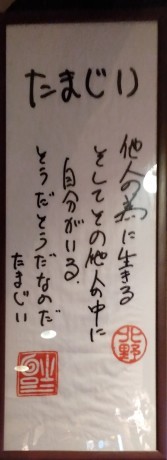 たまじい
他人の為に生きる
そしてその他人の中に
自分がいる。
とうだとうだなのだ
たまじい
北野